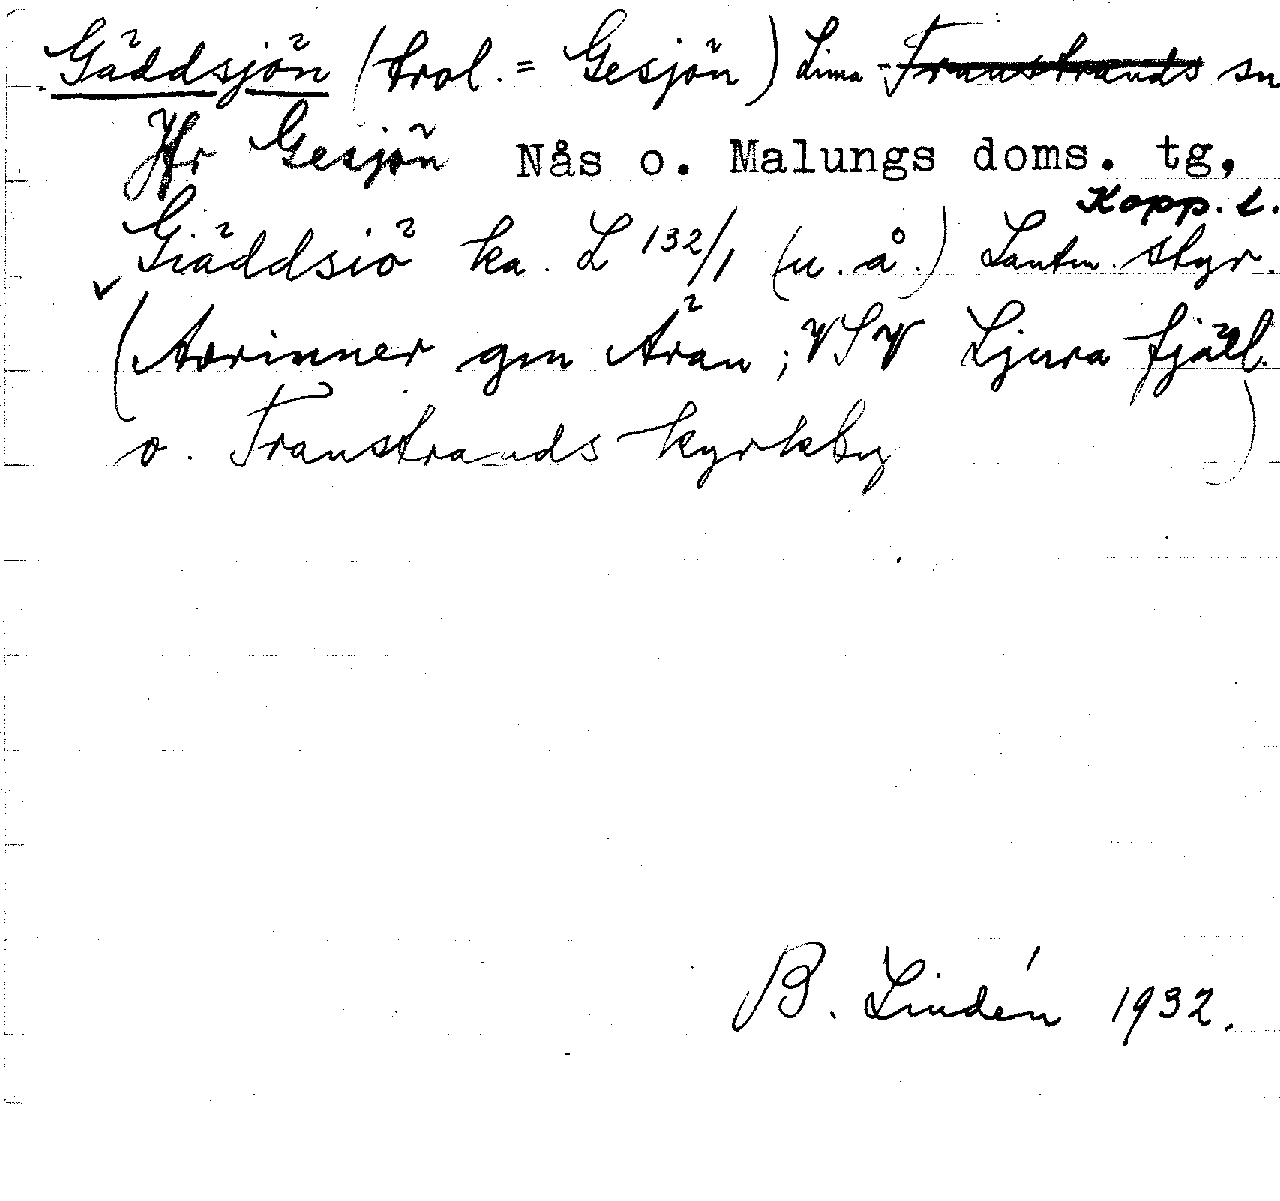 Gäddsjön (trol. = Gesjön) Lima Transtrands sn
Jfr Gesjön Nås o. Malungs doms. tg,
Kopp. l.
Giäddsiö ka. L 132/1 (u. å.) Lantm. styr.
(Avrinner gm Årån; VSV Ljura fjäll.
o. Transtrands kyrkby)
B. Lindén 1932.